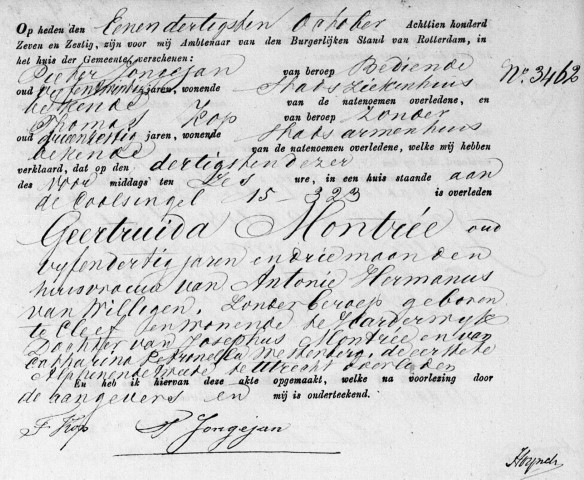 Op heden den Eenendertigsten October Achttien honderd
Zeven en Zestig, zijn voor mij Ambtenaar van den Burgerlijken Stand van Rotterdam, in
het huis der Gemeente, verschenen:
Pieter Jongejan van beroep Bediende No. 3462
oud jaren, wonende Stads Ziekenhuis
bekende van de natenoemen overledene, en
Thomas Kop van beroep Zonder
oud jaren, wonende Stads armenhuis
bekende van de natenoemen overledene, welke mij hebben
verklaard, dat op den dertigsten dezer
des voor middags ten zes ure, in een huis staande aan
de Coolsingel 15-323 is overleden
Geertruida Montrée oud
vyfendertig jaren en drie maanden
huisvrouw van Antonie Hermanus
van Willigen, Zonder beroep geboren
te Cleef en wonende te Harderwyk
Dochter van Josephus Montrée en van
Catharina Petronella Westenberg, de eerste te
de tweede te Utrecht overleden
En heb ik hiervan deze akte opgemaakt, welke na voorlezing door
de aangevers en mij is onderteekend.
T. Kop P Jongejan